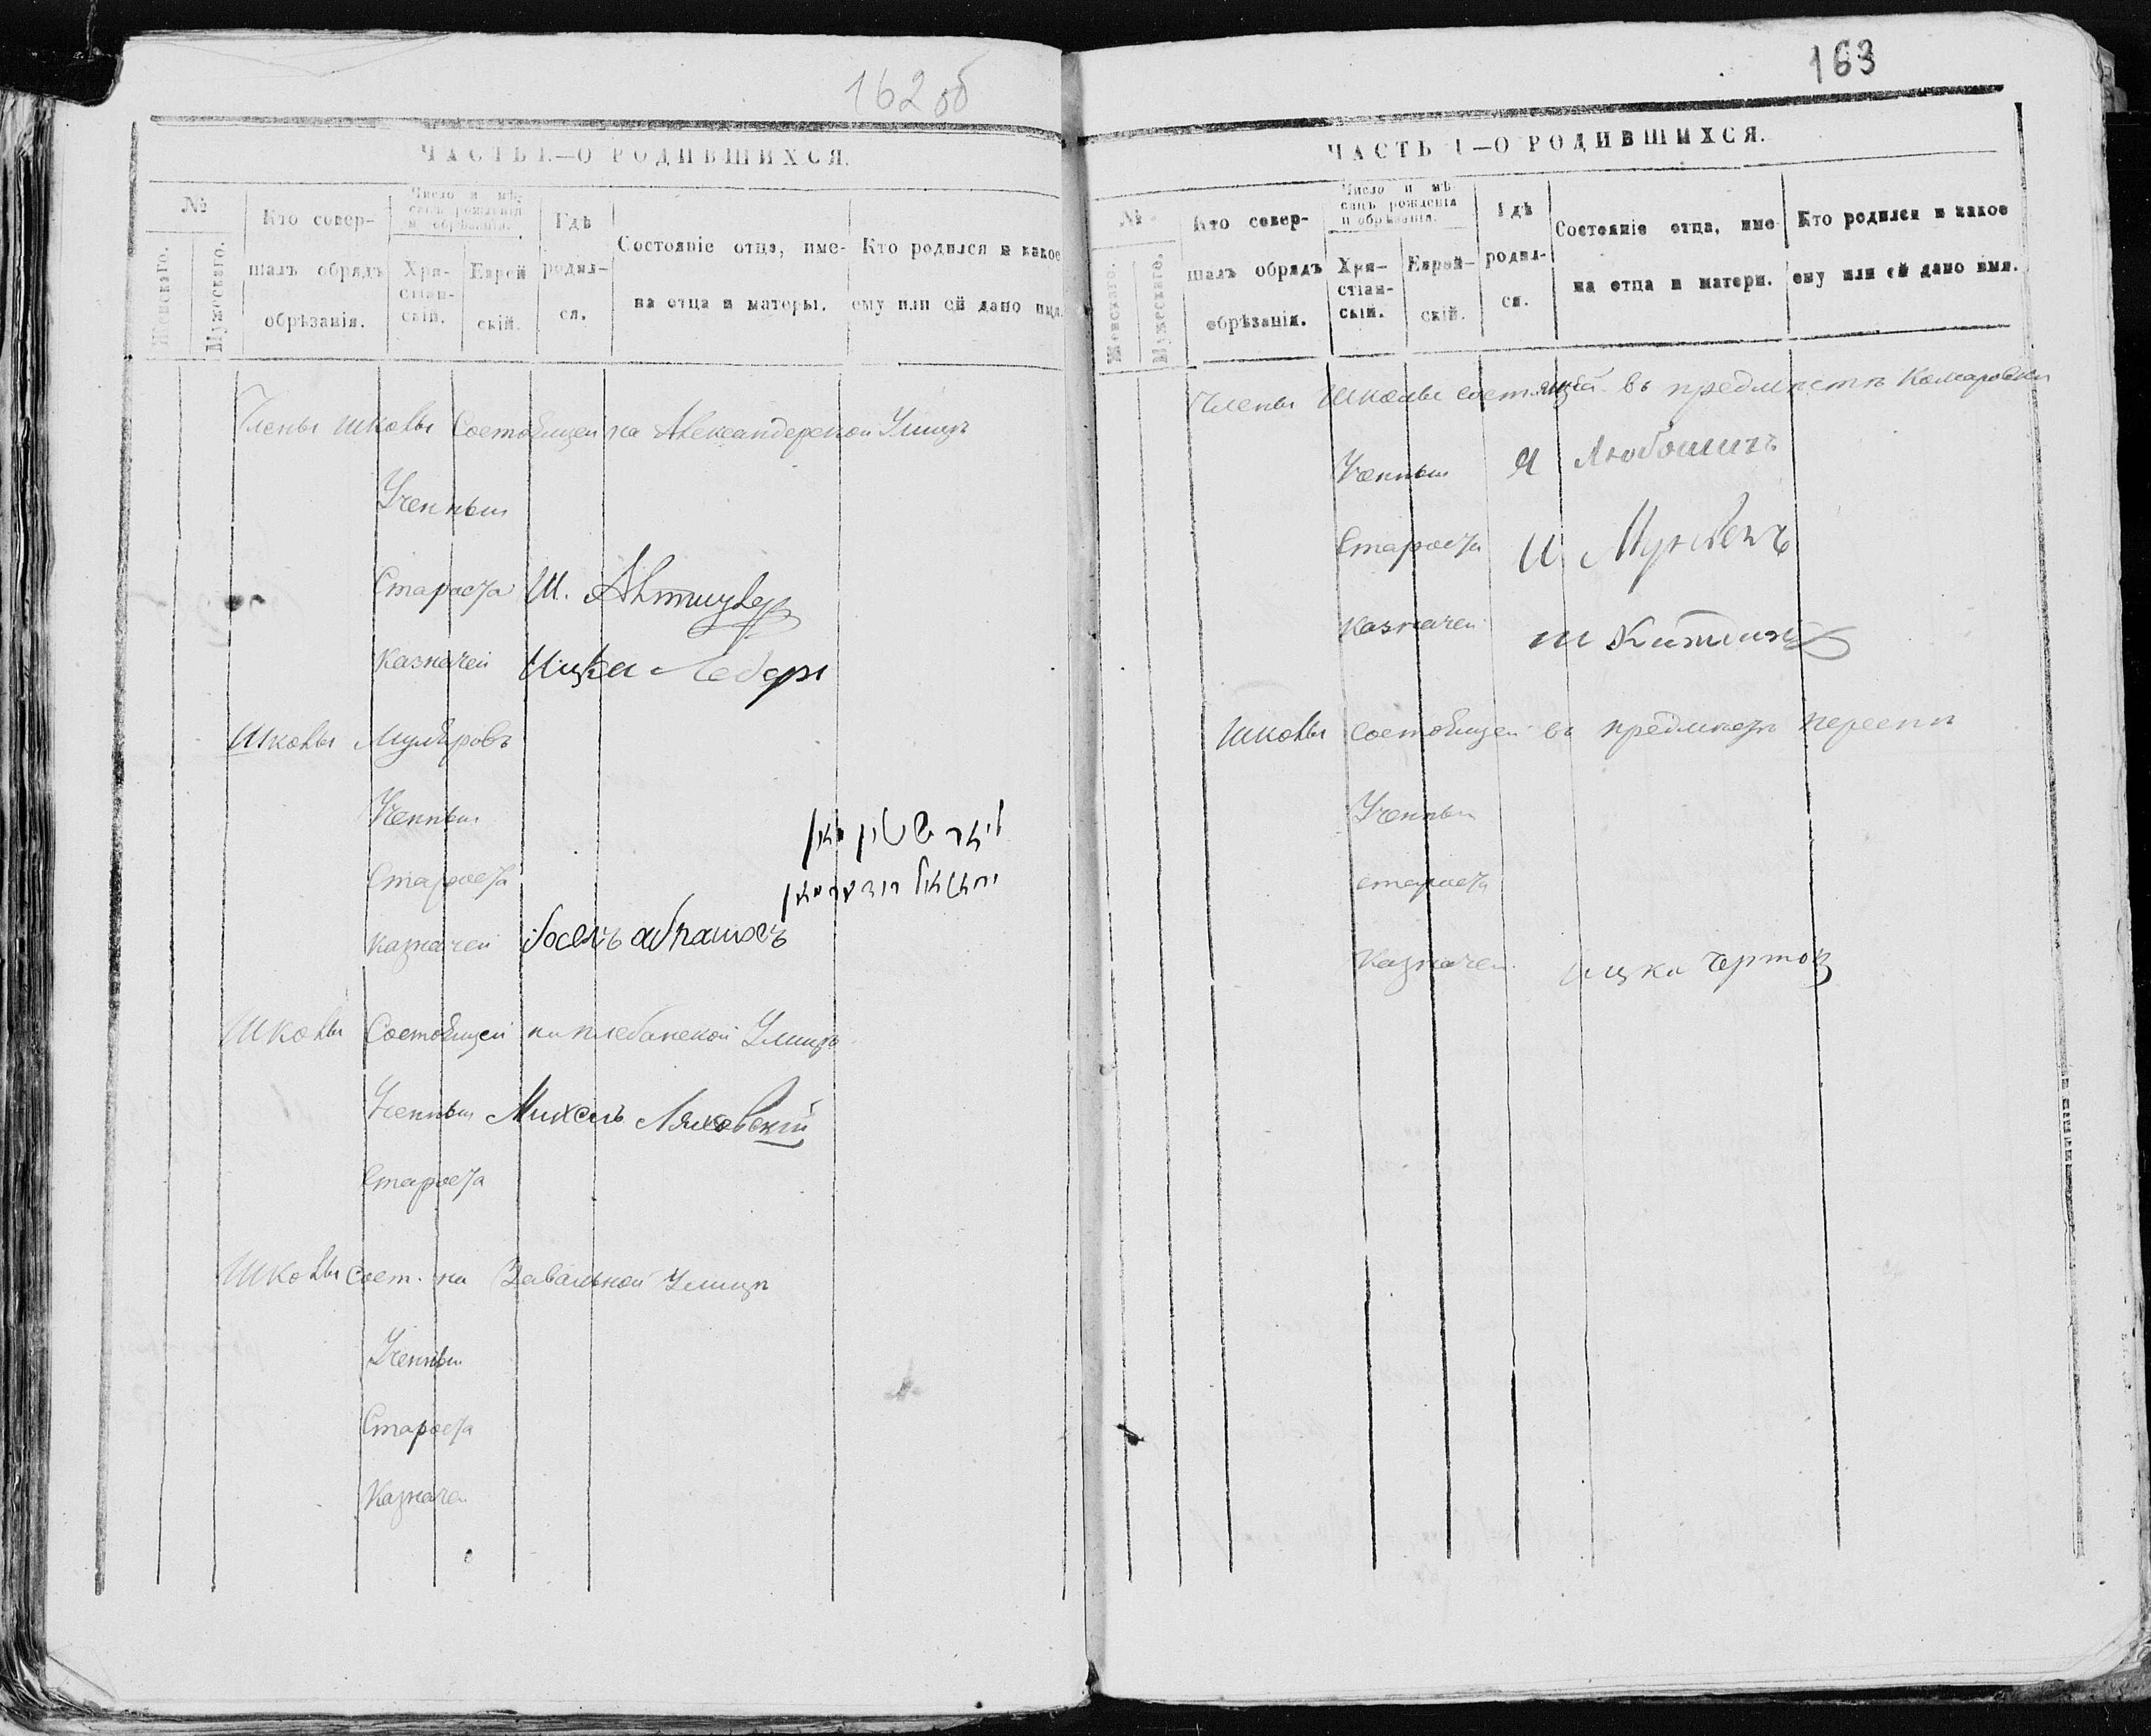 162 об
ЧАСТЬ I.—О РОДИВШИХСЯ.
№
Женскаго.
Мужескаго.
Кто совер-
шалъ обрядъ
обрѣзанія.
Число и мѣ-
сяцъ рожденія
и обрѣзанія.
Хри-
стіан-
скій.
Еврей
скій.
Гдѣ
родил-
ся.
Состояніе отца, име-
на отца и матеры.
Кто родился и какое
ему или ей дано имя.
Члены школы Состоящей на Александерской Улицѣ
Ученный
Староста Ш. Альтшулер
Казначей Ицка
Школы Мулѣровъ
Ученный
Староста
Казначей
Школы Состоящей на плебанской Улицѣ
Ученный Михель Ляховскій
Староста
Школы Сост. на Завальной Улицѣ
Ученный
Староста
Казначей
163
ЧАСТЬ I—О РОДИВШИХСЯ.
№
Женскаго.
Мужескаго.
Кто совер-
шалъ обрядъ
обрѣзанія.
Число и мѣ-
сяцъ рожденія
и обрѣзанія.
Хри-
стіан-
скій.
Еврей-
скій.
Гдѣ
родил-
ся.
Состояніе отца, име-
на отца и матери.
Кто родился и какое
ему или ей дано имя.
Члены Школы состоящей въ предмѣстѣ Комаровки
Ученный Я Любошицъ
Староста И
Казначей Ш
Школы состоящей въ предмѣстѣ Переспѣ
Ученный
староста
Казначей Ицка Чертов